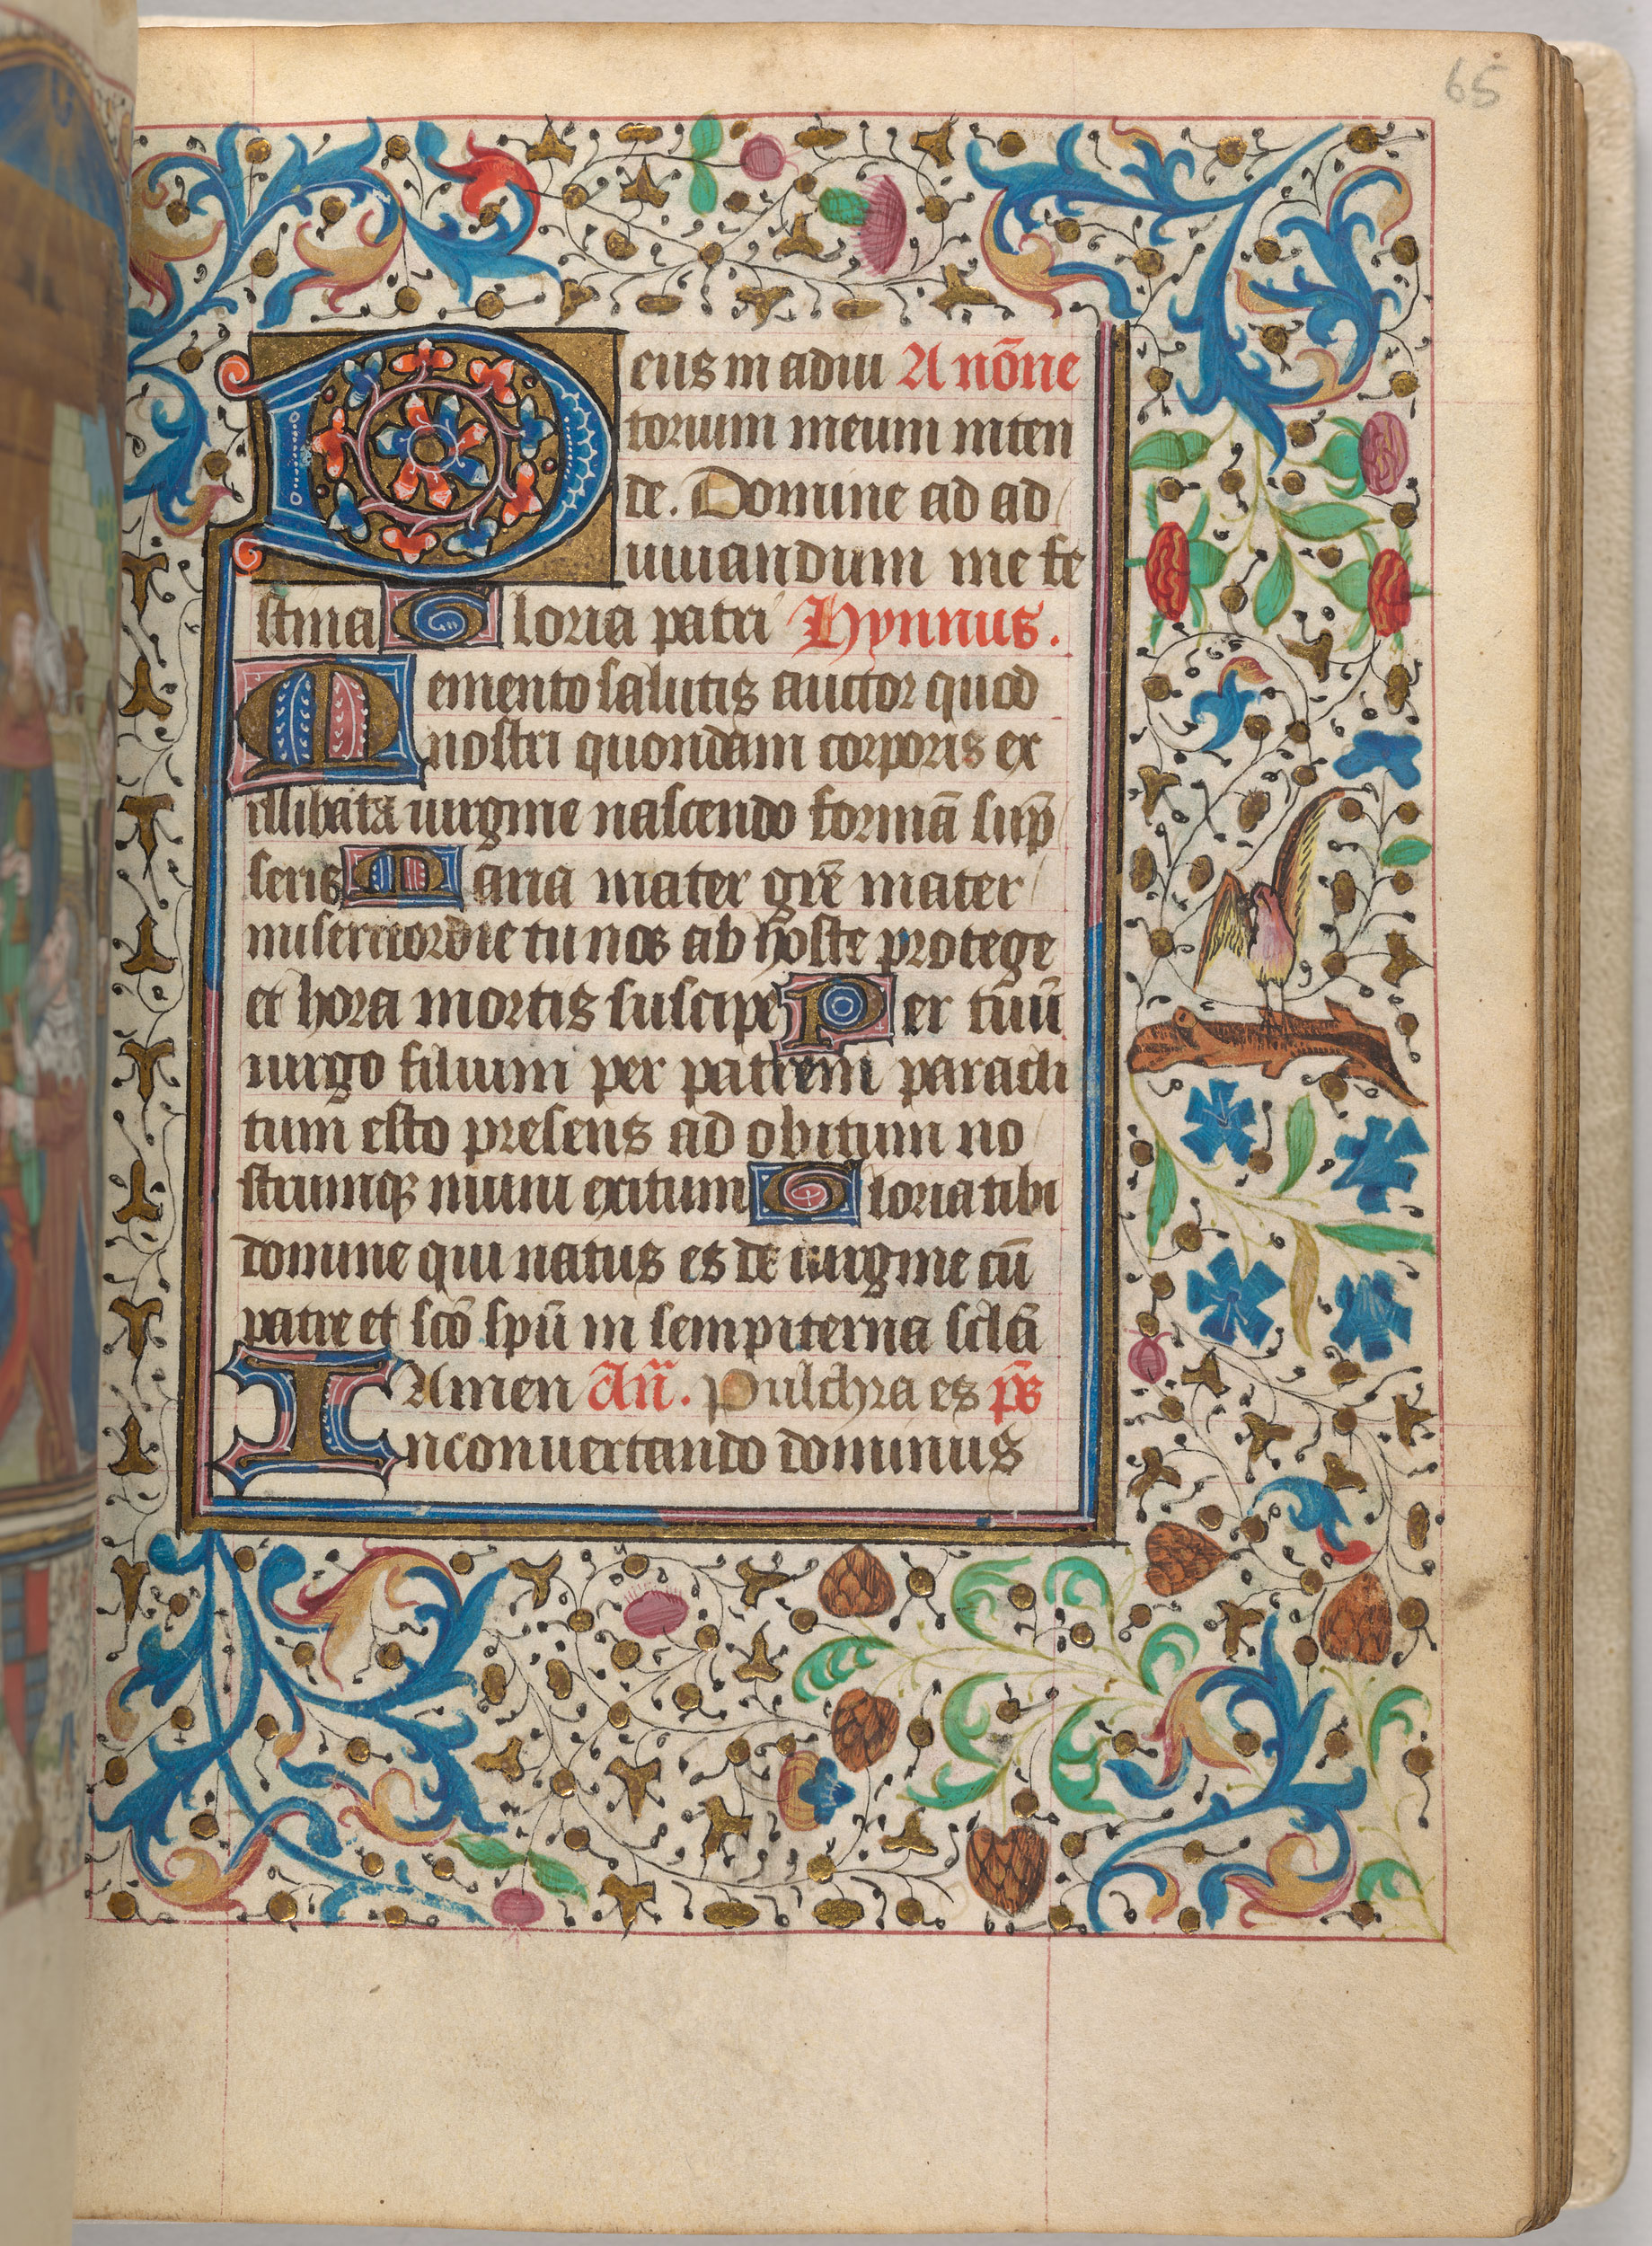 65
Deus in adiu A nōne
torium meum inten
de. Domine ad ad
iuuandum me fe
stina Gloria patri Hynnus.
Memento salutis auctor quod
nostri quondam corporis ex
illibata uirgine nascendo formā sūp
seris Maria mater grē mater
misericordie tu nos ab hoste protege
et hora mortis suscipe Per tuū
uirgo filium per patrem paracli
tum esto presens ad obitum no
strumqꝫ muni exitum Gloria tibi
domine qui natus es de uirgine cū
patre et scō spū in sempiterna sclā
Amen Añ. Pulchra es pš
In conuertendo dominus